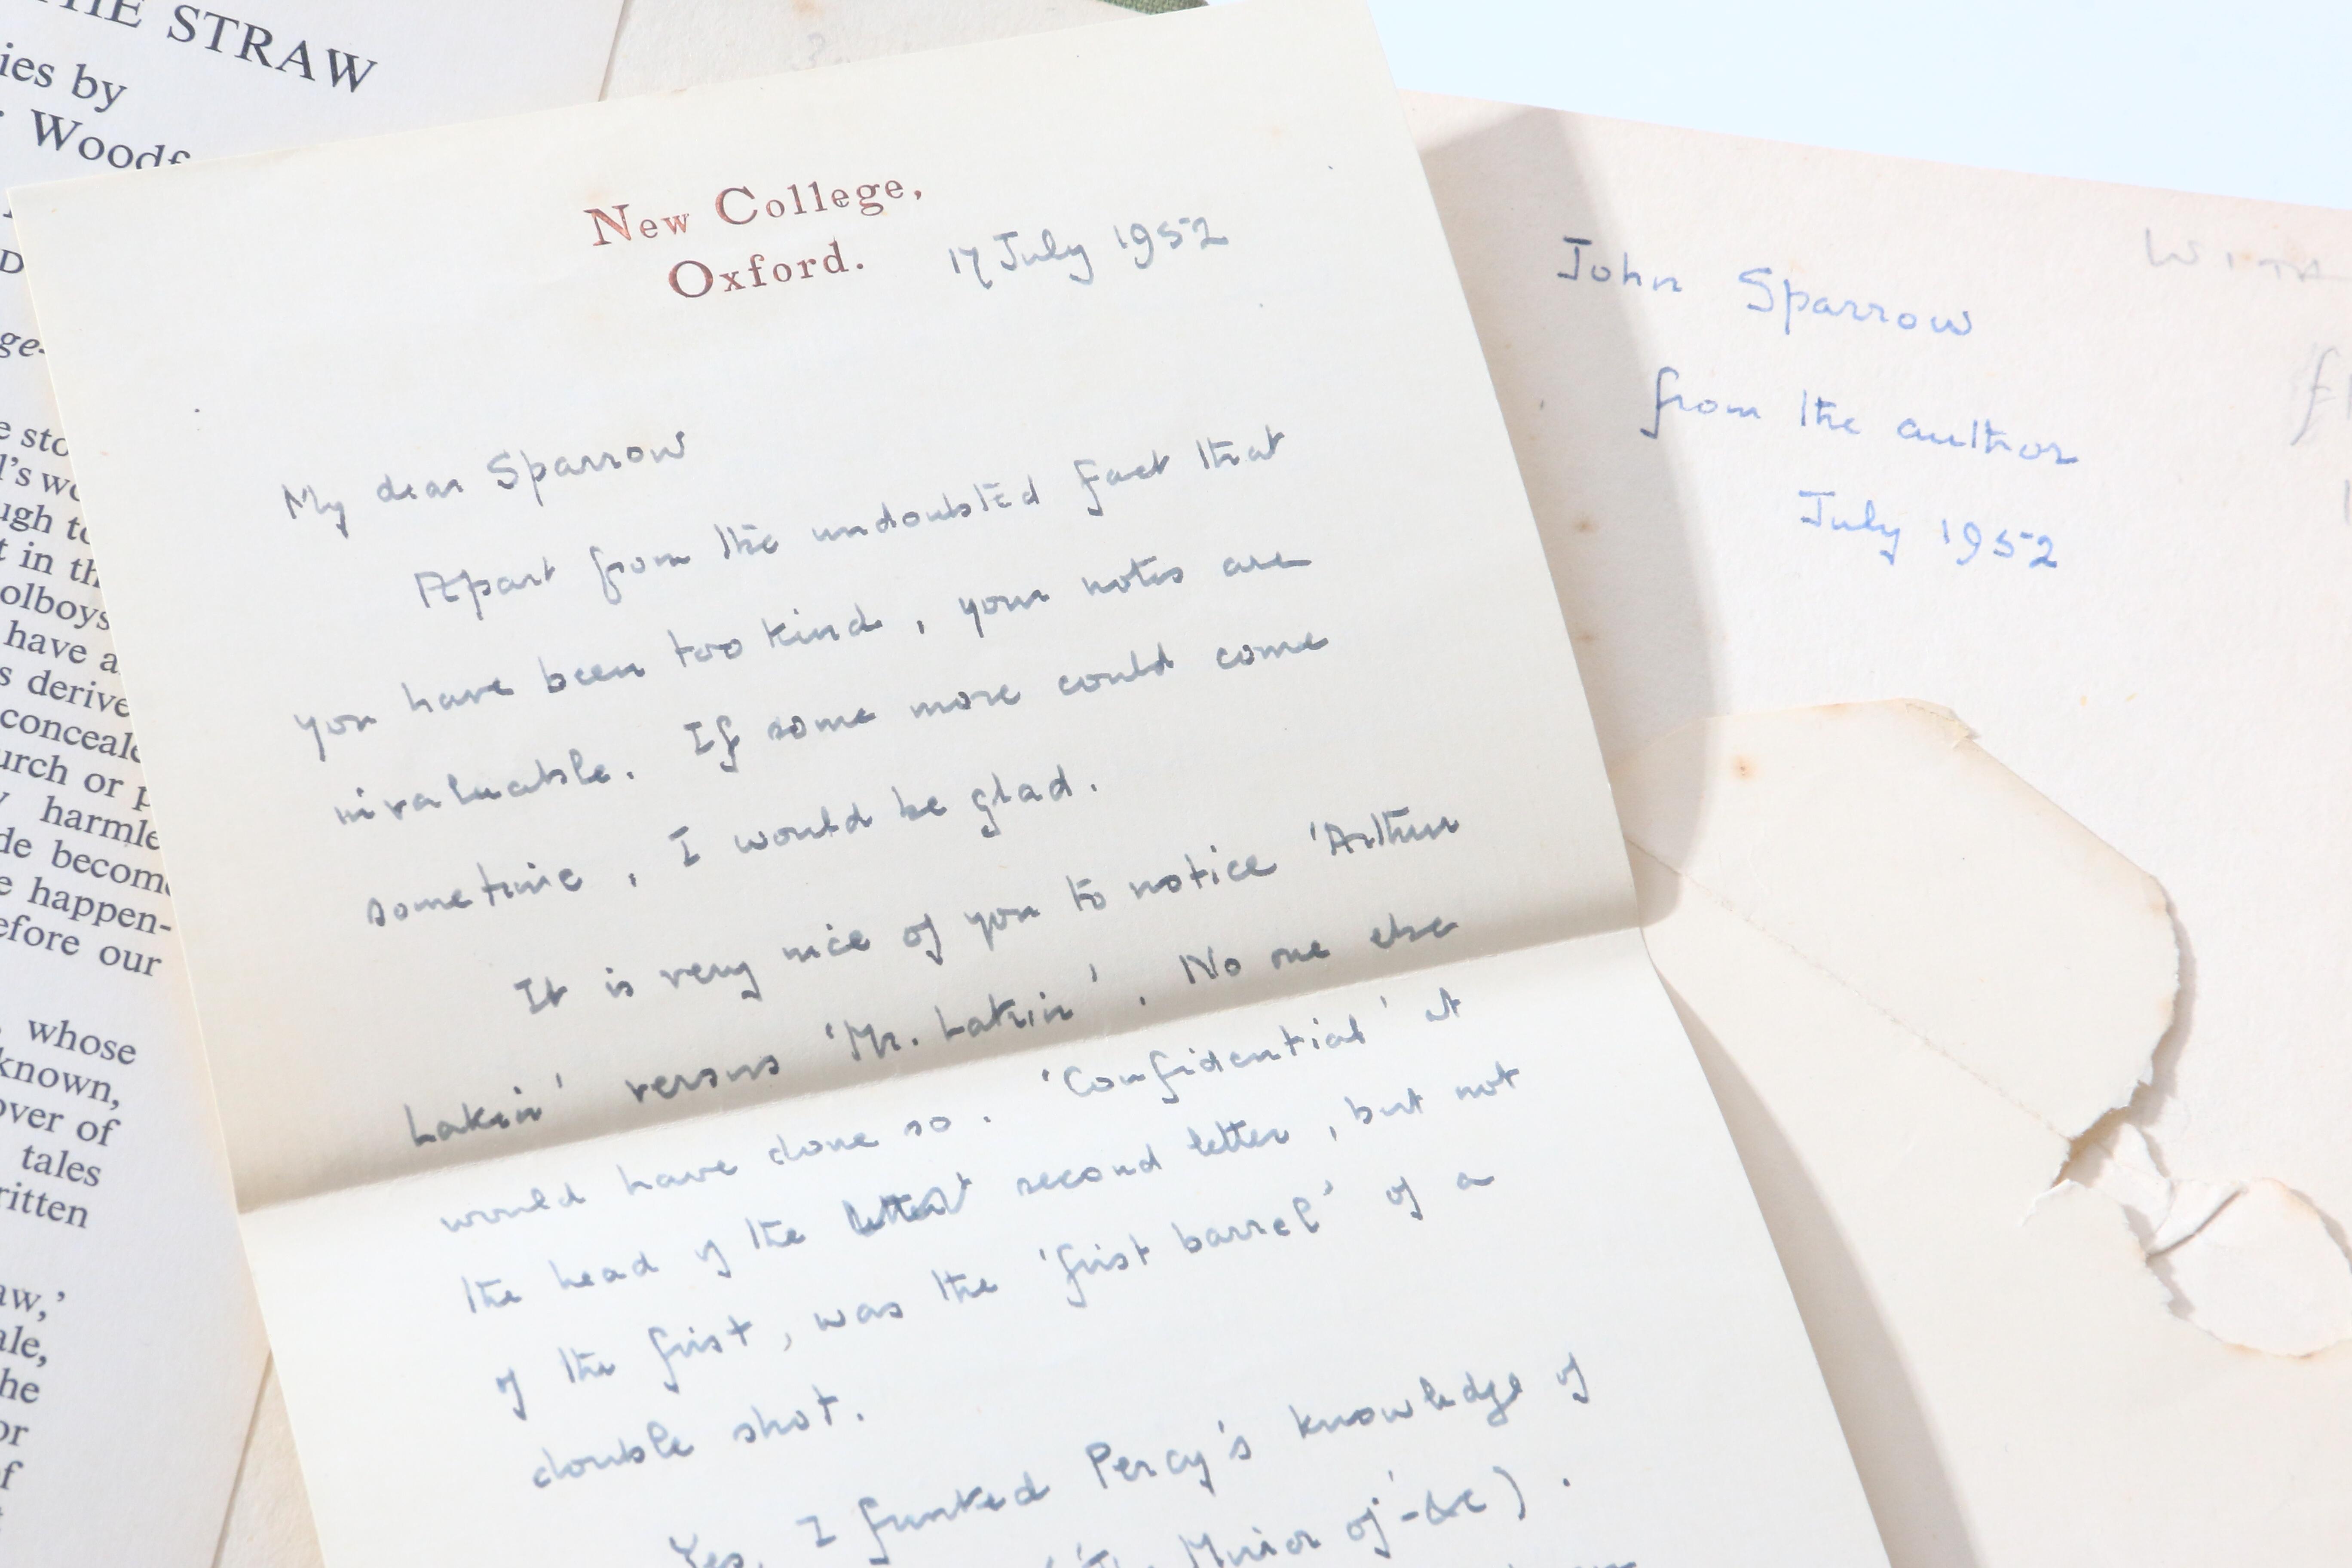 THE STRAW
ies by
Woodf
ge-
e sto
l's wo
ugh to
t in th
olboys
have a
s derive
conceale
urch or p
harmle
de becom
e happen-
efore our
whose
known,
over of
tales
ritten
aw,'
ale,
he
or
of
New College,
Oxford.
17 July 1952
My dear Sparrow
Apart from the undoubted fact that
you have been too kind, your notes are
invaluable. If some more could come
sometime, I would be glad.
It is very nice of you to notice 'Arthur
Lakin' versus 'Mr. Lakin'. No one else
would have done so. 'Confidential' at
the head of the second letter, but not
of the first, was the 'first barrel' of a
double shot.
Yes, I funked Percy's knowledge of
of -&c).
John Sparrow
from the author
July 1952
WITH